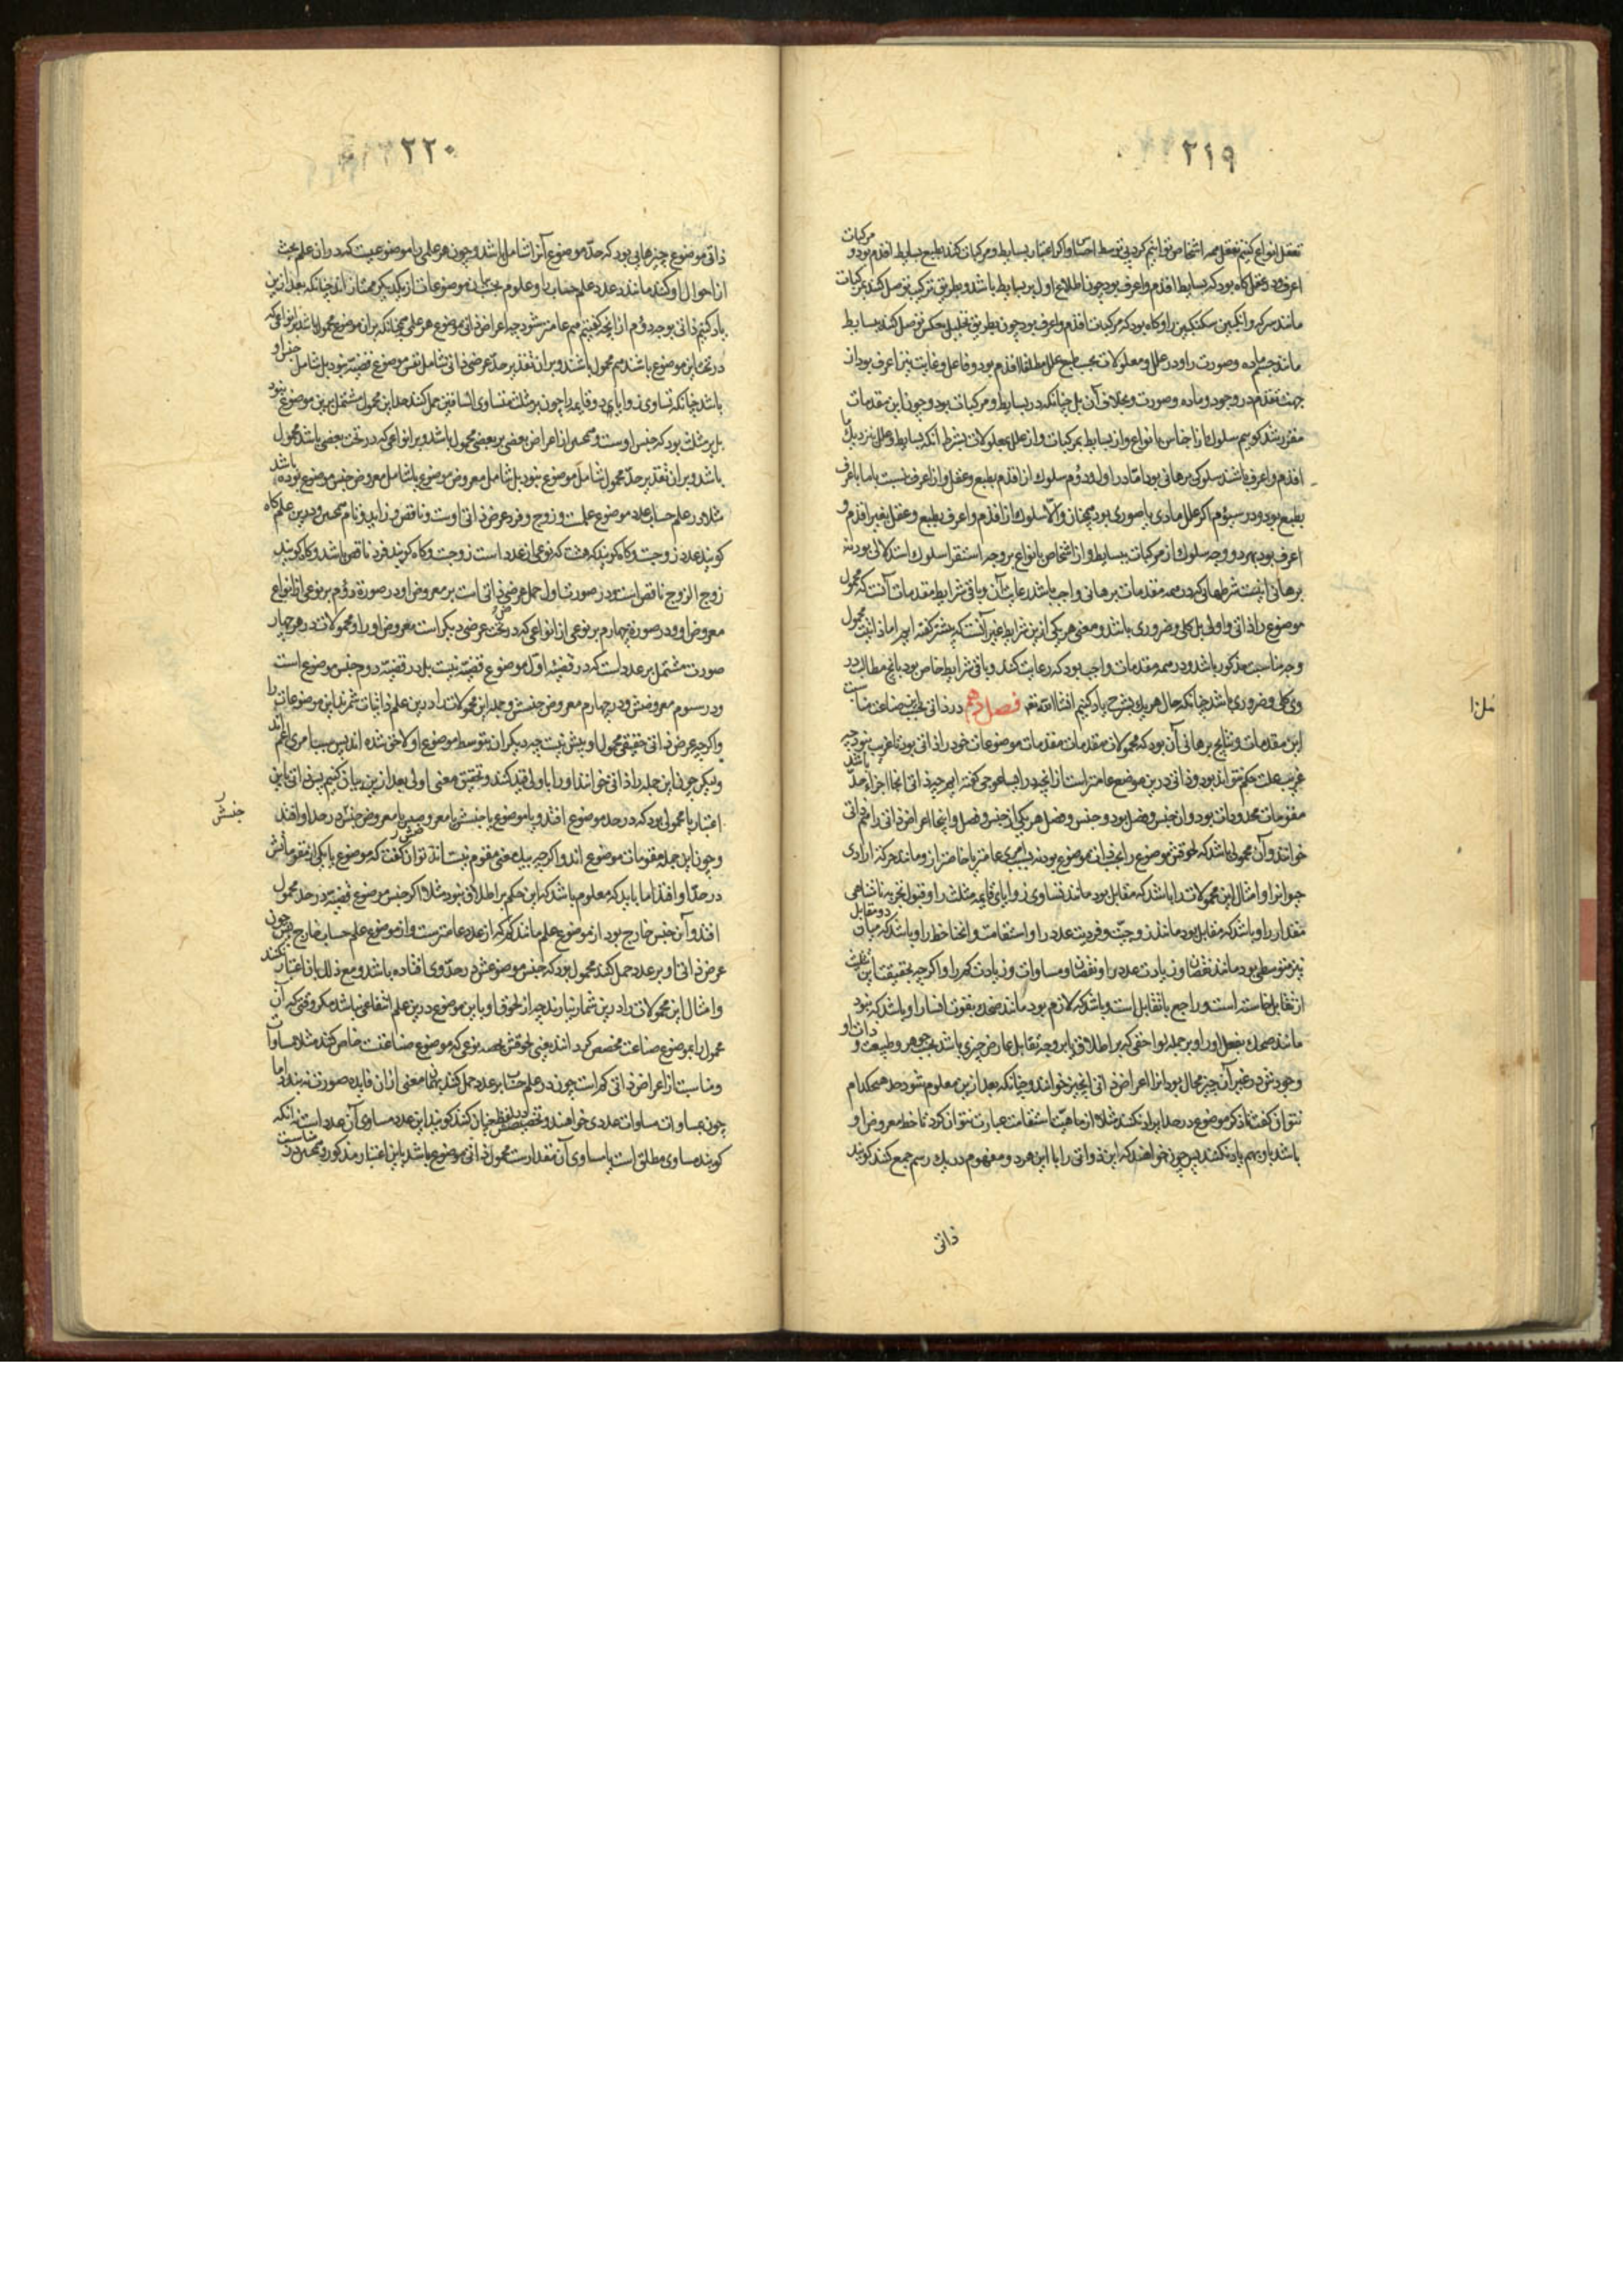 ٢١٩
تعقل انواع کنیم تعقل همه اشخاص نتوانیم کرد بی توسط احساس و اگر اعتبار بسایط و مرکبات کنند بطبع بسایط اقدم بود و مرکبات
اعرف و بعقل گاه بود که بسایط اقدم و اعرف بود چون اطلاع اول بر بسایط باشد و بطریق ترکیب توصل کنند بمرکبات
مانند سرکه و انگبین سکنگبین را و گاه بود که مرکبات اقدم و اعرف بود چون بطریق تحلیل بعکس توصل کنند ببسایط
مانند جسم ماده و صورت را و در علل و معلولات بحسب طبع علل مطلقا اقدم بود و فاعل و غایت نیز اعرف بود از
جهت تقدم در وجود و ماده و صورت بخلاف آن بل چنانکه در بسایط و مرکبات بود و چون این مقدمات
مقرر شد گوییم سلوک ما از اجناس بانواع و از بسایط بمرکبات و از علل بمعلولات بشرط آنکه بسایط و علل بنزدیک ما
اقدم و اعرف باشند سلوکی برهانی بود اما در اول و دوم سلوک از اقدم بطبع و عقل و از اعرف نسبت با ما باعرف
بطبع بود و در سیوم اگر علل مادی یا صوری بود همچنان و الا سلوک از اقدم و اعرف بطبع و عقل بغیر اقدم و
اعرف بود بهر دو وجه سلوک از مرکبات ببسایط و از اشخاص بانواع بر وجه استقرا سلوک استدلالی بود نه
برهانی اینست شرطهائی که در همه مقدمات برهانی واجب باشد رعایت آن و باقی شرایط مقدمات آنست که محمول
موضوع را ذاتی و اولی بل کلی و ضروری باشد و معنی هر یکی ازین شرایط غیر آنست که پیشتر گفته ایم اما ذاتیت محمول
وجه مناسبت مذکور باشد و در همه مقدمات واجب بود که رعایت کنند و باقی شرایط خاص بود بانچ مطالب در
وی کلی و ضروری باشد چنانکه حال هر یک بشرح یاد کنیم انشاالله تعه فصل دهم در ذاتی بحسب این صناعت مناسبت
این مقدمات و نتایج برهانی آن بود که محمولات مقدمات موضوعات خود را ذاتی بود نه غریب چه
غریب علت حکم نتواند بود و ذاتی درین موضع عامتر است از آنچه در ایساغوجی گفته ایم چه ذاتی آنجا اجزاء حد باشد
مقومات محدود ذات بود و آن جنس و فصل بود و جنس و فصل هر یکی از جنس و فصل و اینجا اعراض ذاتی را هم ذاتی
خوانند و آن محمولی باشد که لحوقش موضوع را بذات موضوع بود نه بسبب امری عامتر یا خاصتر ازو مانند حرکت ارادی
حیوان را و امثال این محمولات را باشد که مقابل بود مانند تساوی زوایای قایمه مثلث را و قبول تجزیه نامتناهی
مقدار را و باشد که مقابل بود مانند زوجیت و فردیت عدد را و استقامت و انحنا خط را و باشد که میان دو مقابل
نیز متوسطی بود مانند نقصان و زیادت عدد را و نقصان و مساوات و زیادت کم را و اگر چه بحقیقت این
از تقابل خاسته است و راجع با تقابل است و باشد که لازم بود مانند ضحک بقوت انسان را و باشد که نبود
مانند ضحک بفعل او را و بر جمله لواحقی که بر اطلاق یا بر وجه تقابل عارض چیزی باشد بحسب جوهر و طبیعت و ذات او
وجودش در غیر آن چیز محال بود آنرا اعراض ذاتی آنچیز خوانند و چنانکه بعد ازین معلوم شود حد هیچکدام
نتوان گفت تا ذکر موضوع در حد ایراد نکنند مثلا از ماهیت استقامت عبارت نتوان کرد تا خط معروض او
باشد باو بهم یاد نکنند پس چون خواهند که این ذواتی را با این هر دو مفهوم در یک رسم جمع کنند گویند
ذاتی
٢٢٠
ذاتی موضوع چیزهایی بود که حد موضوع آنرا شامل باشد و چون هر علمی را موضوعیست که در آن علم بحث
از احوال او کنند مانند عدد علم حساب را و علوم بحسب موضوعات از یکدیگر ممتاز اند چنانکه بعد ازین
یاد کنیم ذاتی بوجه دوم از آنچه گفتیم هم عامتر شود چه اعراض ذاتی موضوع هر علمی همچنانکه بر آن موضوع محمول باشد بر انواعی که
در تحت این موضوع باشند هم محمول باشند و بر آن تقدیر حد عرض ذاتی شامل نفس موضوع قضیه نبود بل شامل جنس او
باشد چنانکه تساوی زوایای دو قایمه را چون بر مثلث متساوی الساقین حمل کنند حد این محمول مشتمل برین موضوع نبود
بل بر مثلث بود که جنس اوست و همچنین از اعراض بعضی بر بعضی محمول باشد و بر انواعی که در تحت بعضی باشد محمول
باشد و بر آن تقدیر حد محمول شامل موضوع نبود بل شامل معروض موضوع یا شامل معروض جنس موضوع بوده باشد
مثلا در علم حساب عدد موضوع علمست و زوج و فرد عرض ذاتی اوست و ناقص و زاید و تام همچنین و درین علم گاه
گویند عدد زوجست و گاه گویند که هشت که نوعی از عدد است زوجست و گاه گویند فرد ناقص باشد و گاه گویند
زوج الزوج ناقص است و در صورت اول حمل عرض ذاتی است بر معروض او و در صورة دوم بر نوعی از انواع
معروض او و در صورة چهارم بر نوعی از انواعی که در تحت عرضی دیگر است معروض او را و محمولات در هر چهار
صورت مشتمل بر عدد است که در قضیه اول موضوع قضیه نیست بل در قضیه دوم جنس موضوع است
و در سوم معروضش و در چهارم معروض جنسش و جمله این محمولات را درین علم ذاتیات شمرند این موضوعات را
و اگر چه عرض ذاتی حقیقی محمول او بیش نیست چه دیگران بتوسط موضوع او لاحق شده اند پس بسبب امری اعم اند
و دیگر چون این جمله را ذاتی خوانند او را باولی قید کنند و تحقیق معنی اولی بعد ازین بیان کنیم پس ذاتی باین
اعتبار یا محمولی بود که در حد موضوع افتد و یا موضوع یا جنسش یا معروضش یا معروض جنسش در حد او افتد
جنسش
و چون این جمله مقومات موضوع اند و اگر چه بیک معنی مقوم نیستند توان گفت که موضوع یا یکی از مقوماتش
در حد او افتد اما باید که معلوم باشد که این حکم بر اطلاق نبود مثلا اگر جنس موضوع قضیه در حد محمول
افتد و آن جنس خارج بود از موضوع علم مانند کم که از عدد عامترست و از موضوع علم حساب خارج پس چون
عرض ذاتی او بر عدد حمل کنند محمول بود که جنس موضوعش در حد وی افتاده باشد و مع ذلک باین اعتبار نکنند
و امثال این محمولات را درین شمار نیارند چه از لحوق او باین موضوع درین علم انتفاعی نباشد مگر وقتی که آن
محمول را بموضوع صناعت مخصص گردانند یعنی لحوقش بحصه نوعی که موضوع صناعتست خاص کنند مثلا مساوات
و مناسبت از اعراض ذاتی کم است چون در علم حساب بر عدد حمل کنند بهمان معنی از آن فایده صورت نه بندد اما
چون بمساوات مساوات عددی خواهند و تخصیصش بیان کنند گویند این عدد مساوی آن عدد است نه آنکه
گویند مساوی مطلق است یا مساوی آن مقدارست محمول ذاتی موضوع باشد باین اعتبار مذکور و همچنین در مناسبت